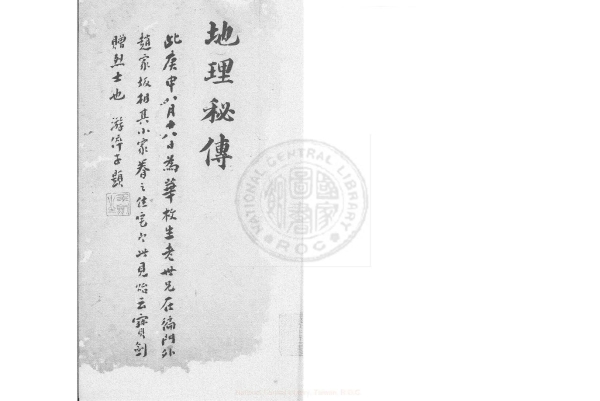 地理秘傳
此庚申八月十八日為華校生老世兄在偏門外
趙家坂相其小家眷之佳宅穴此見貽云寶劍
贈烈士也 游濟子題
NATIONAL CENTRAL LIBRARY
國家圖書
ROC